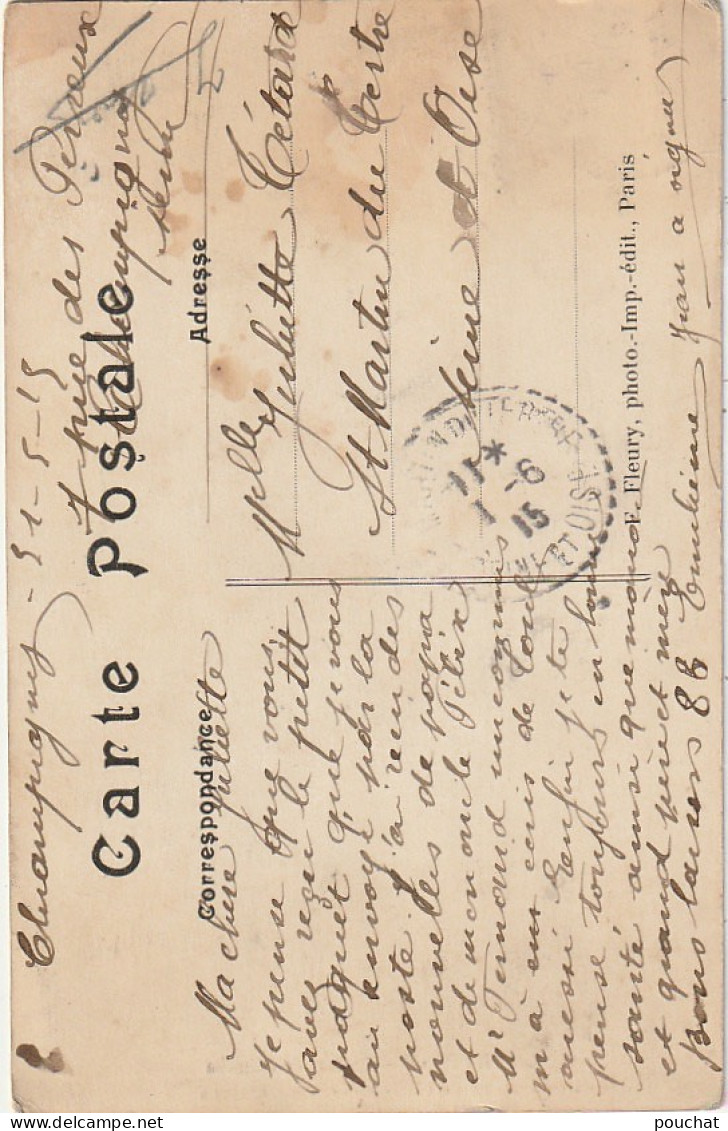 Champigny - 31-5-15
7 rue des Perreux
Champigny
Seine
Carte Postale
Correspondance
Adresse
Ma chère Juliette
Je pense que vous
avez reçu le petit
paquet que je vous
ai envoyé par la
poste. J'ai eu des
nouvelles de papa
et de mon oncle Félix
Mr Fernand un commis
m'a écris de Toul
aussi Enfin je te
pense toujours en bonne
santé ainsi que mémère
et grand père et mes
bons baisers 86 Emilienne Jean a signé
Melle
Juliette Tétard
St Martin du Tertre
Seine et Oise
MARTIN DU TERTRE
11 *
1 -6
15
SEINE ET OISE
F. Fleury, photo.-Imp.-édit., Paris
pouchat